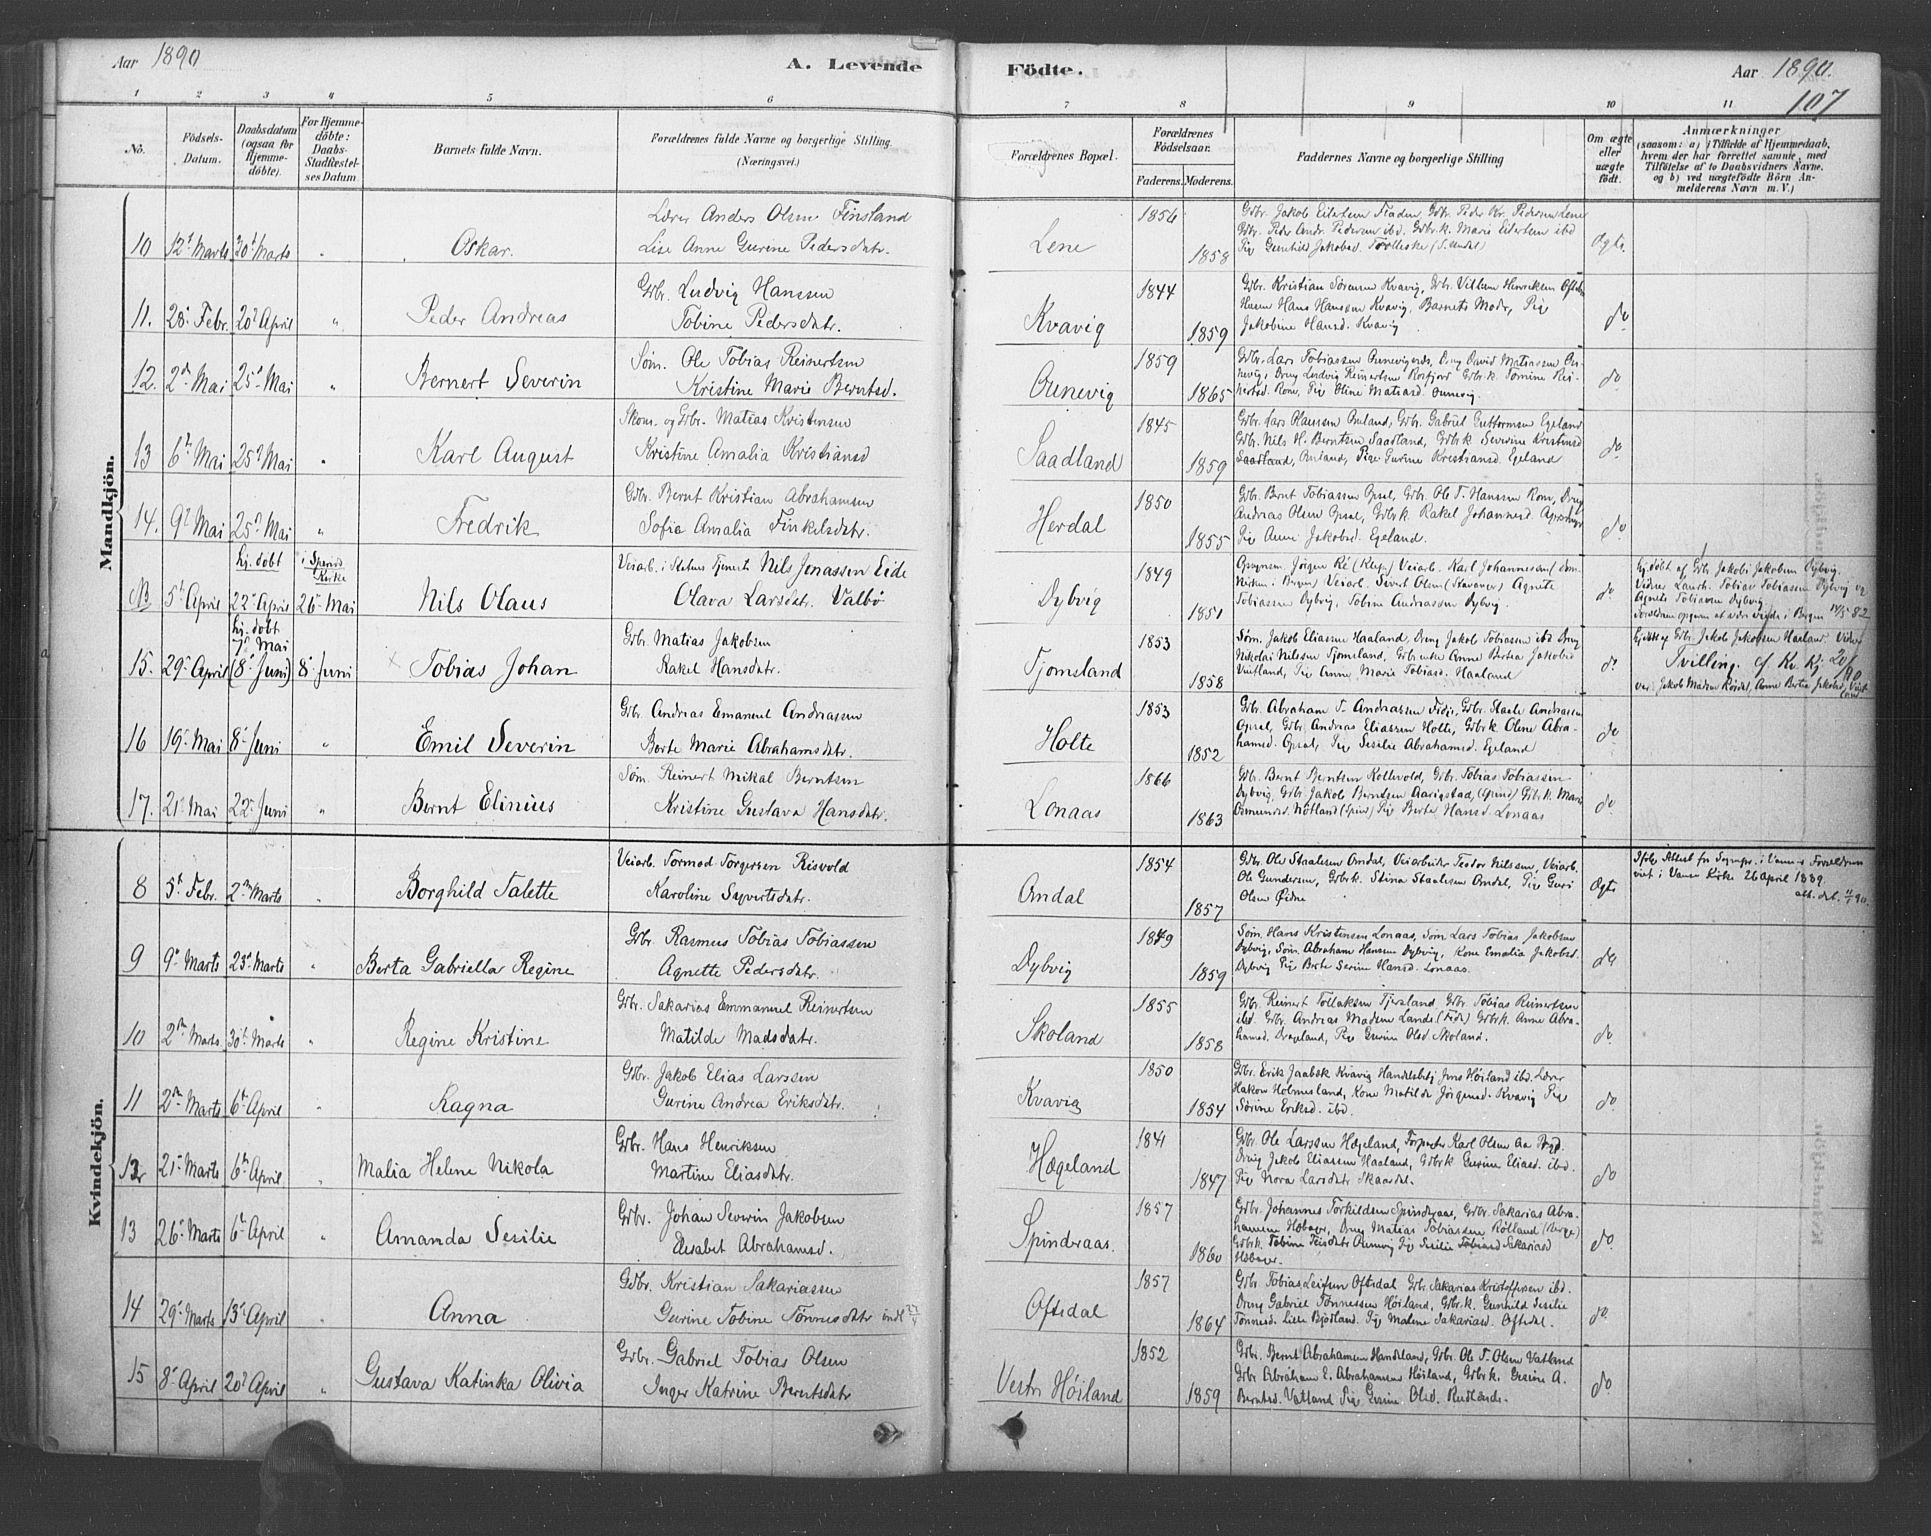 Aar 1890
A. Levende Födte.
Aar 1890.
107
1 2 3 4 5 6 7 8 9 10 11
No.
Födsels-Datum.
Daabsdatum (ogsaa for Hjemmedöbte).
For Hjemmedöbte: Daabs-Stadfæstelses Datum
Barnets fulde Navn.
Forældrenes fulde Navne og borgerlige Stilling. (Næringsvei.)
Forældrenes Bopæl.
Forældrenes Födselsaar.
Faderens. Moderens.
Faddernes Navne og borgerlige Stilling
Om ægte eller uægte født.
Anmærkninger
(saasom: a) i Tilfælde af Hjemmedaab, hvem der har forrettet samme, med Tilföielse af to Daabsvidners Navne, og b) ved uægtefödte Börn Anmelderens Navn m. V.)
Mandkjön.
10 12t Marts 30t Marts " Oskar. Lærer Anders Olsen Finsland
Lise Anne Gurine Pedersdatr. Lene 1856 1858
Gbr. Jakob Eilertsen Fladen, Gbr. Peder Kr. Pedersen Lene
Gbr. Peder Andr. Pedersen ibd. Gbrk. Marie Eilertsen ibd
Pige Gunhild Jakobsd. Ægte.
11. 28. Febr. 20d April " Peder Andreas Gbr. Ludvig Hanssen
Tobine Pedersdatr. Kvavig 1844 1859
Gbr. Kristian Sörensen Kvavig, Gbr. Villum Henriksen
Hans Hansen Kvavig, Barnets Moder, Pige
Jakobine Hansd. Kvavig do
12. 2d Mai 25d Mai " Bernert Severin Söm. Ole Tobias Reinertsen
Kristine Marie Berntsd. Ounevig 1859 1865
Gbr. Lars Tobiassen Ounevig, Ung David Matiassen Ounevig,
Ung Ludvig Reinertsen Rosfjord Gbrk. Tomine Reinertsd.
Rom, Pige Oline Matiasd. Ounevig do
13 6te Mai 25d Mai " Karl August Skom. og Gbr. Matias Kristensen
Kristine Amalia Kristiansd Saadland 1845 1859
Gbr. Lars Hanssen Buland, Gbr. Gabriel Guttormsen Egeland
Gbr. Nils H. Berntsen Saadland, Gbrk Severine Kristensd
Saadland, Buland, Pige Gurine Kristiansd. Egeland do
14. 9d Mai 25d Mai " Fredrik Gbr. Bernt Kristian Abrahamsen
Sofia Amalia Finkelsdatr. Herdal 1850 1855
Gbr. Bernt Tobiassen Opsal, Gbr. Ole T. Hanssen Rom, Ung
Andreas Olsen Opsal, Gbrk. Rakel Johannesd.
Pige Anne Jakobsd. Egeland. do
NB 5t April hj. döbt 22d April i Spind Kirke 26 Mai Nils Olaus Veiarb. i Statens Tjeneste Nils Jonassen Eide
Olava Larsdatr. Valbö Dybvig 1849 1851
Jörgen Ré (Klep) Veiarb. Karl Johannesen
Veiarb. Sivert Olsen (Stavanger) Agnete
Tobiassen Dybvig, Tobine Andreassen Dybvig. do
hj. döbt af Gbr. Jakob Jakobsen Dybvig.
Vidner Tobias Tobiassen Dybvig og
Agnete Tobiassen Dybvig.
Forældrene opgiver at være viede i Bergen 14/5 82
15. 29. April hj. döbt 7d Mai (8 Juni) 8. Juni Tobias Johan Gbr. Matias Jakobsen
Rakel Hansdatr. Tjomsland 1853 1858
Söm. Jakob Eliassen Haaland, Ung Jakob Tobiassen ibd Ung
Nikolai Nilssen Tjomsland, Gbr.enke Anne Bertea Jakobsd
Vatland, Pige Anne Marie Tobiasd. Haaland do
hjdöbt af Gbr. Jakob Jakobsen Haaland. Vidner
Tvilling. cf. Kv. Kj. 20/90
var: Jakob Madsen Röidal, Anne Bertea Jakobsd
16 19. Mai 8. Juni " Emil Severin Gbr. Andreas Emanuel Andreassen
Berte Marie Abrahamsdatr. Holte 1853 1852
Gbr. Abraham T. Andreassen Fidje, Gbr. Staale Andreassen
Opsal, Gbr. Andreas Eliassen Holte, Gbrk Olene Abrahamsd.
Opsal, Pige Sesilie Abrahamsd. Egeland do
17. 21. Mai 22. Juni " Bernt Elinius Söm. Reinert Mikal Berntsen
Kristine Gustava Hansdatr. Lonaas 1866 1863
Gbr. Bernt Berntsen Kollevold, Gbr. Tobias Tobiassen
Dybvig, Gbr. Jakob Berntsen Aarigstad, (Spind) Gbrk. Marie
Osmundsd. Nötland (Spind) Pige Berte Hansd. Lonaas do
Kvindekjön.
8 5t Febr. 2den Marts " Borghild Talette Veiarb. Tormod Torgersen Risvold
Karoline Syvertsdatr. Omdal 1854 1857
Gbr. Ole Staalesen Omdal, Veiarbeider Teodor Nilssen, Veiarb.
Ole Gundersen, Gbrk. Stina Staalesen Omdal, Pige Guri
Olsen Öidne Ægte
Ifölge Attest fra Sognepr. i Vanse Forældrene
viet i Vanse Kirke 26 April 1889.
9 9. Marts 23d Marts " Berta Gabriella Regine Gbr. Rasmus Tobias Tobiassen
Agnette Pedersdatr. Dybvig 1849 1859
Söm. Hans Kristensen Lonaas, Söm Lars Tobias Jakobsen
Dybvig, Söm. Abraham Hansen Dybvig, Kone Emalia Jakobsd.
Dybvig Pige Berte Serine Hansd. Lonaas. do
10 2den Marts 30t Marts " Regine Kristine Gbr. Sakarias Emmanuel Reinertsen
Matilde Madsdatr. Skoland 1855 1858
Gbr. Reinert Tollaksen Tjersland, Gbr. Tobias Reinertsen
ibd. Gbr. Andreas Madsen Lande (Fede) Gbrk. Anne Abrahamsd.
Drageland, Pige Gurine Olsd. Skoland. do
11 2den Marts 6te April " Ragna Gbr. Jakob Elias Larssen
Gurine Andrea Eriksdatr. Kvavig 1850 1854
Gbr. Erik Jaabek Kvavig Handelsbetj. Jens Höiland ibd. Lærer
Hakon Holmesland, Kone Matilde Jörgensd. Kvavig Pige
Sörine Eriksd. ibd. do
12 21. Marts 6te April " Malia Helene Nikola Gbr. Hans Henriksen
Martine Eliasdatr. Hægeland 1841 1847
Gbr. Ole Larssen Hægeland, Forpagter Karl Olsen
Ung Jakob Eliassen Haaland, Gbrk Gurine Eliasd. ibd.
Pige Nora Larsdatr Skaardal. do
13 26. Marts 6te April " Amanda Sesilie Gbr. Johan Severin Jakobsen
Elisabet Abrahamsd. Spindsaas. 1857 1860
Gbr. Johannes Torkildsen Spindsaas, Gbr. Sakarias Abrahamsen
Ung Matias Tobiassen Rölland
Gbrk. Tobine Teisdatr Ounevig Pige Sesilie Tobiasd Sakariasd do.
14 29. Marts 13. April " Anna Gbr. Kristian Sakariassen
Gurine Tobine Tönnesdatr Oftedal 1857 1864
Gbr. Tobias Leifsen Oftedal Gbr. Sakarias Kristoffersen ibd.
Ung Gabriel Tönnessen Höiland, Gbrk. Gunhild Sesilie
Tönnesd. Lille Björland. Pige Malene Sakariasd. Oftedal. do.
15 8. April 20d April " Gustava Katinka Olivia Gbr. Gabriel Tobias Olsen
Inger Katrine Berntsdatr Vestr Höiland 1852 1859
Gbr. Bernt Abrahamsen Handeland, Gbr. Ole T. Olsen Vatland
Gbr Abraham E. Abrahamsen Höiland, Gbrk. Gurine A.
Berntsd. Vatland Pige Gurine Olsd. Rudland. do